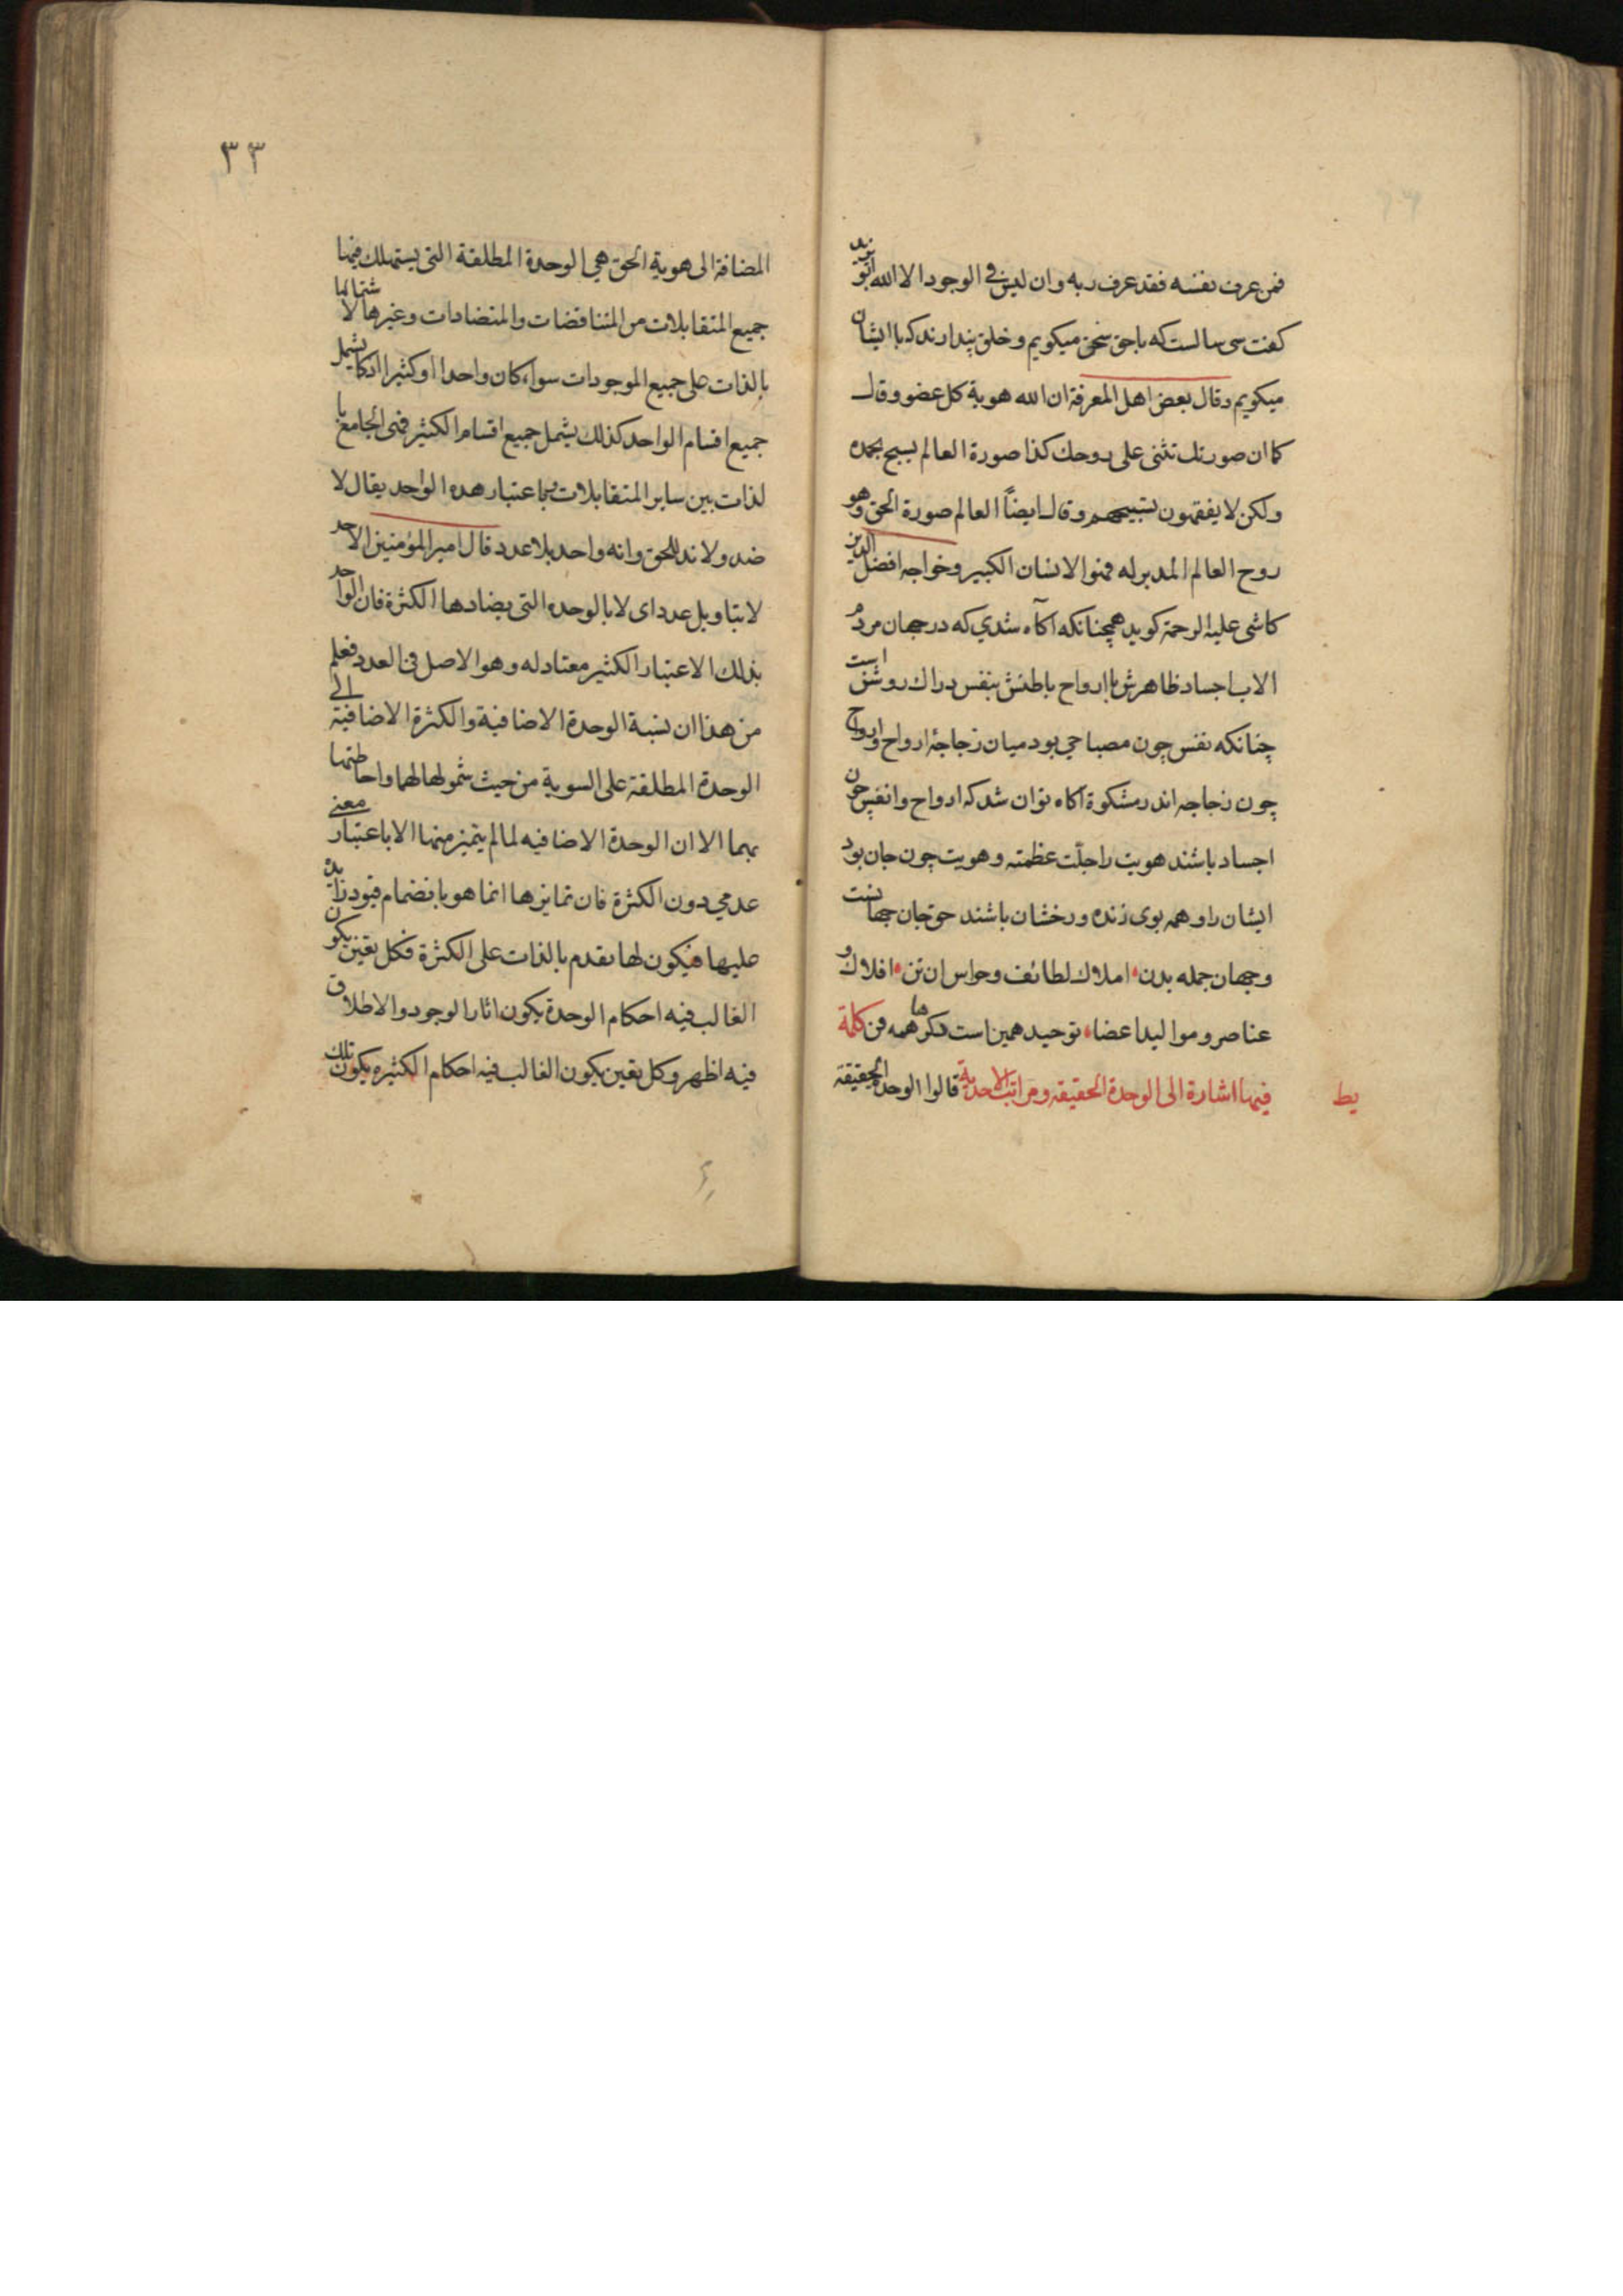 فمن عرف نفسه فقد عرف ربه وان ليس في الوجود الا الله ابو يزيد
كفت سى سالست كه باحق سخن ميكويم وخلق پندارند كه با ايشان
ميكويم وقال بعض اهل المعرفة ان الله هوية كل عضو وقال
كما ان صورتك تثنى على روحك كذا صورة العالم يسبح بحمده
ولكن لا يفقهون تسبيحهم وقال ايضاً العالم صورة الحق وهو
روح العالم المدبر له فهو الانسان الكبير وخواجه افضل الدين
كاشى عليه الرحمة كويد همچنانكه اكاه شدي كه در جهان مردم
الا ب اجساد ظاهرش با ارواح باطنش بنفس دراك روشن است
چنانكه نفس چون مصباحي بود ميان زجاجۀ ارواح وارواح
چون زجاجه اندر مشكوة اكاه توان شد كه ارواح وانفس چون
اجساد باشند هويت را جلّت عظمته وهويت چون جان بود
ايشان را وهمه بوى زنده ورخشان باشند حق جان جهانست
وجهان جمله بدن املاك لطائف وحواس ان تن افلاك و
عناصر ومواليد اعضاء توحيد همين است دكرها همه فن كلمة
يط
فيها اشارة الى الوحدة الحقيقة ومراتب الاحدية قالوا الوحدة الحقيقة
٣٣
المضافة الى هوية الحق هي الوحدة المطلقة التى يستهلك فيها
جميع المتقابلات من المتناقضات والمتضادات وغيرها لاشتمالها
بالذات على جميع الموجودات سواء كان واحدا او كثيرا اذ كما يشمل
جميع اقسام الواحد كذلك يشمل جميع اقسام الكثير فهى الجامع با
لذات بين ساير المتقابلات وباعتبار هذه الواحد يقال لا
ضد ولا ند للحق وانه واحد بلا عدد قال امير المؤمنين الاحد
لا بتاويل عدد اى لا بالوحدة التى يضادها الكثرة فان الواحد
بذلك الاعتبار الكثير معتاد له وهو الاصل فى العدد فعلم
من هذا ان نسبة الوحدة الاضافية والكثرة الاضافية الى
الوحدة المطلقة على السوية من حيث شمولها لهما واحاطتها
بهما الا ان الوحدة الاضافيه لما لم يتميز منها الا باعتبار معنى
عدمي دون الكثرة فان تمايزها انما هو بانضمام قيود زايدة
عليها فيكون لها تقدم بالذات على الكثرة فكل تعين يكون
الغالب فيه احكام الوحدة يكون اثار الوجود والاطلاق
فيه اظهر وكل تعين يكون الغالب فيه احكام الكثيره يكون تلك